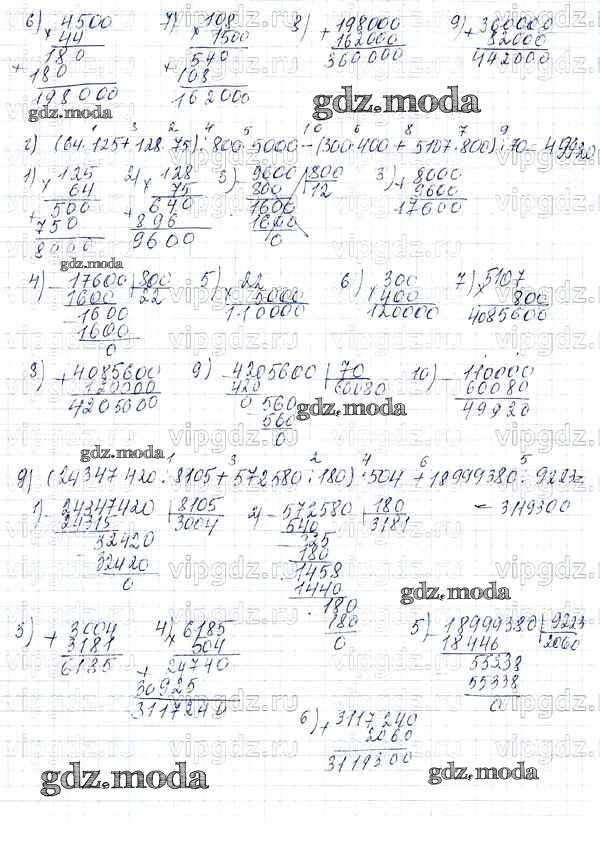 6) 4500 7) 108 8) +198000 9) +360000
× 44 × 1500 162000 82000
180 540 360000 442000
+ 180 + 108
198000 162000
gdz.moda
г) (64·125+128·75):800·5000-(300·400+5107·800):70=49920
1) ×125 2) ×128 3) -9600 |800 3) +8000
64 75 800 12 9600
+ 500 + 640 1600 17600
750 896 1600
8000 9600 0
gdz.moda
4) -17600 |800 5) ×22 6) ×300 7) ×5107
1600 22 5000 400 800
-1600 110000 120000 4085600
1600
0
8) +4085600 9) -4205600 |70 10) -110000
120000 420 60080 60080
4205600 0 560 49920
560
0
gdz.moda
gdz.moda
д) (24347420:8105+572580:180)·504+18999380:9223=
1) -24347420 |8105 2) -572580 |180 =3119300
24315 3004 540 3181
32420 -325
32420 180
0 1458
1440
180
180
0
gdz.moda
3) +3004 4) ×6185 5) -18999380 |9223
3181 504 18446 2060
6185 + 24740 55338
30925 55338
3117240 0
6) +3117240
2060
3119300
gdz.moda
gdz.moda
vipgdz.ru